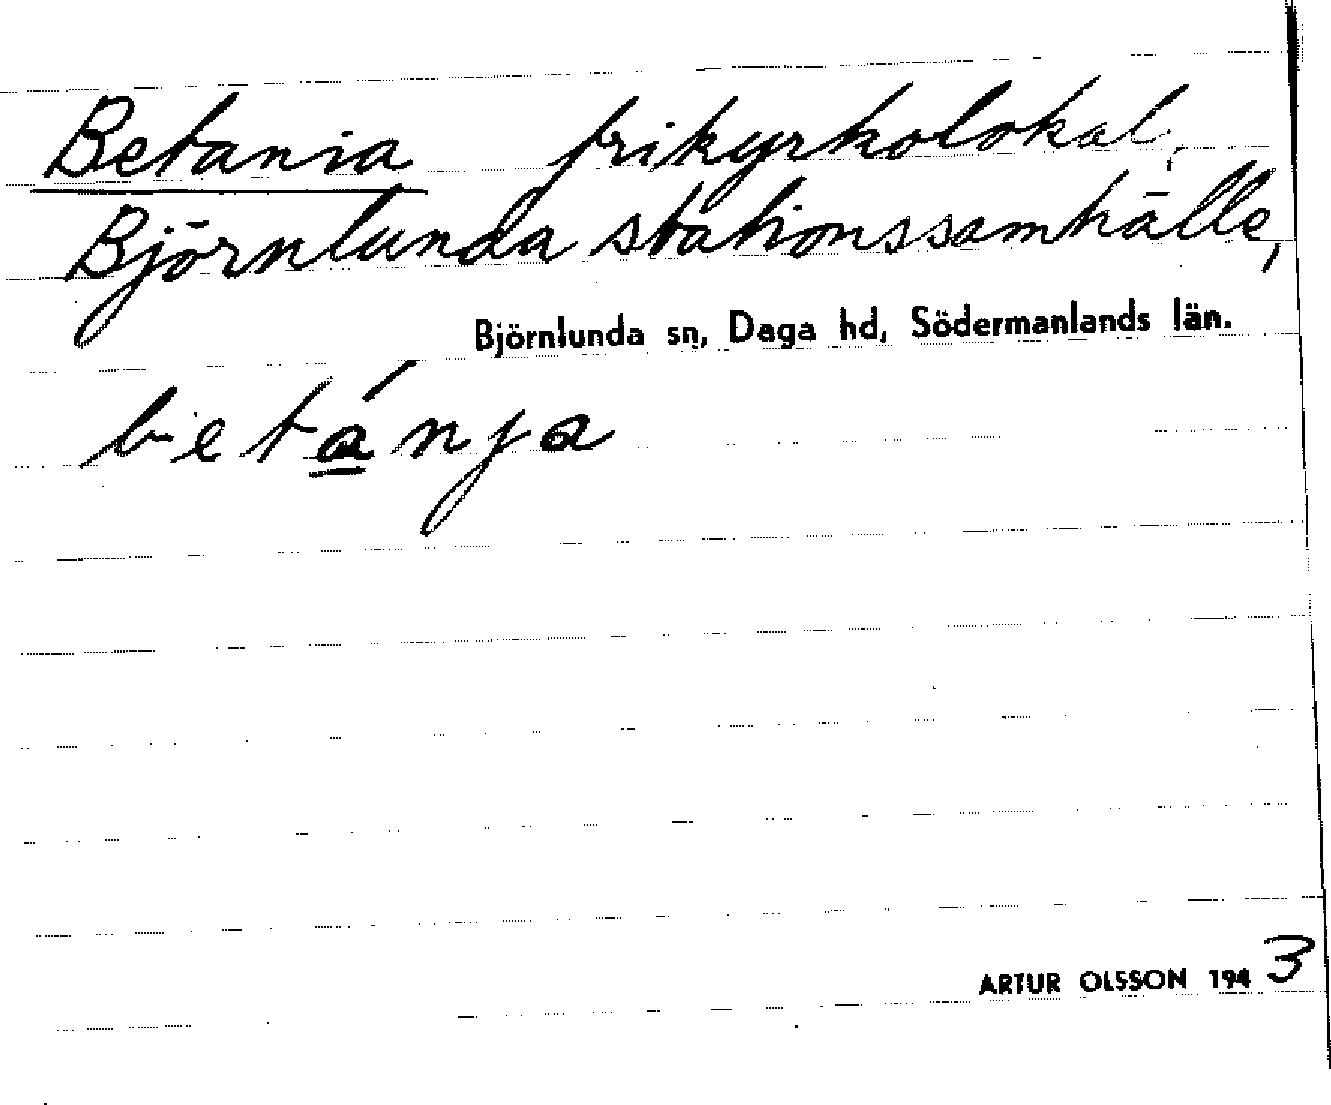 Betania frikyrkolokal,
Björnlunda stationssamhälle,
Björnlunda sn, Daga hd, Södermanlands län.
betánja
ARTUR OLSSON 1943